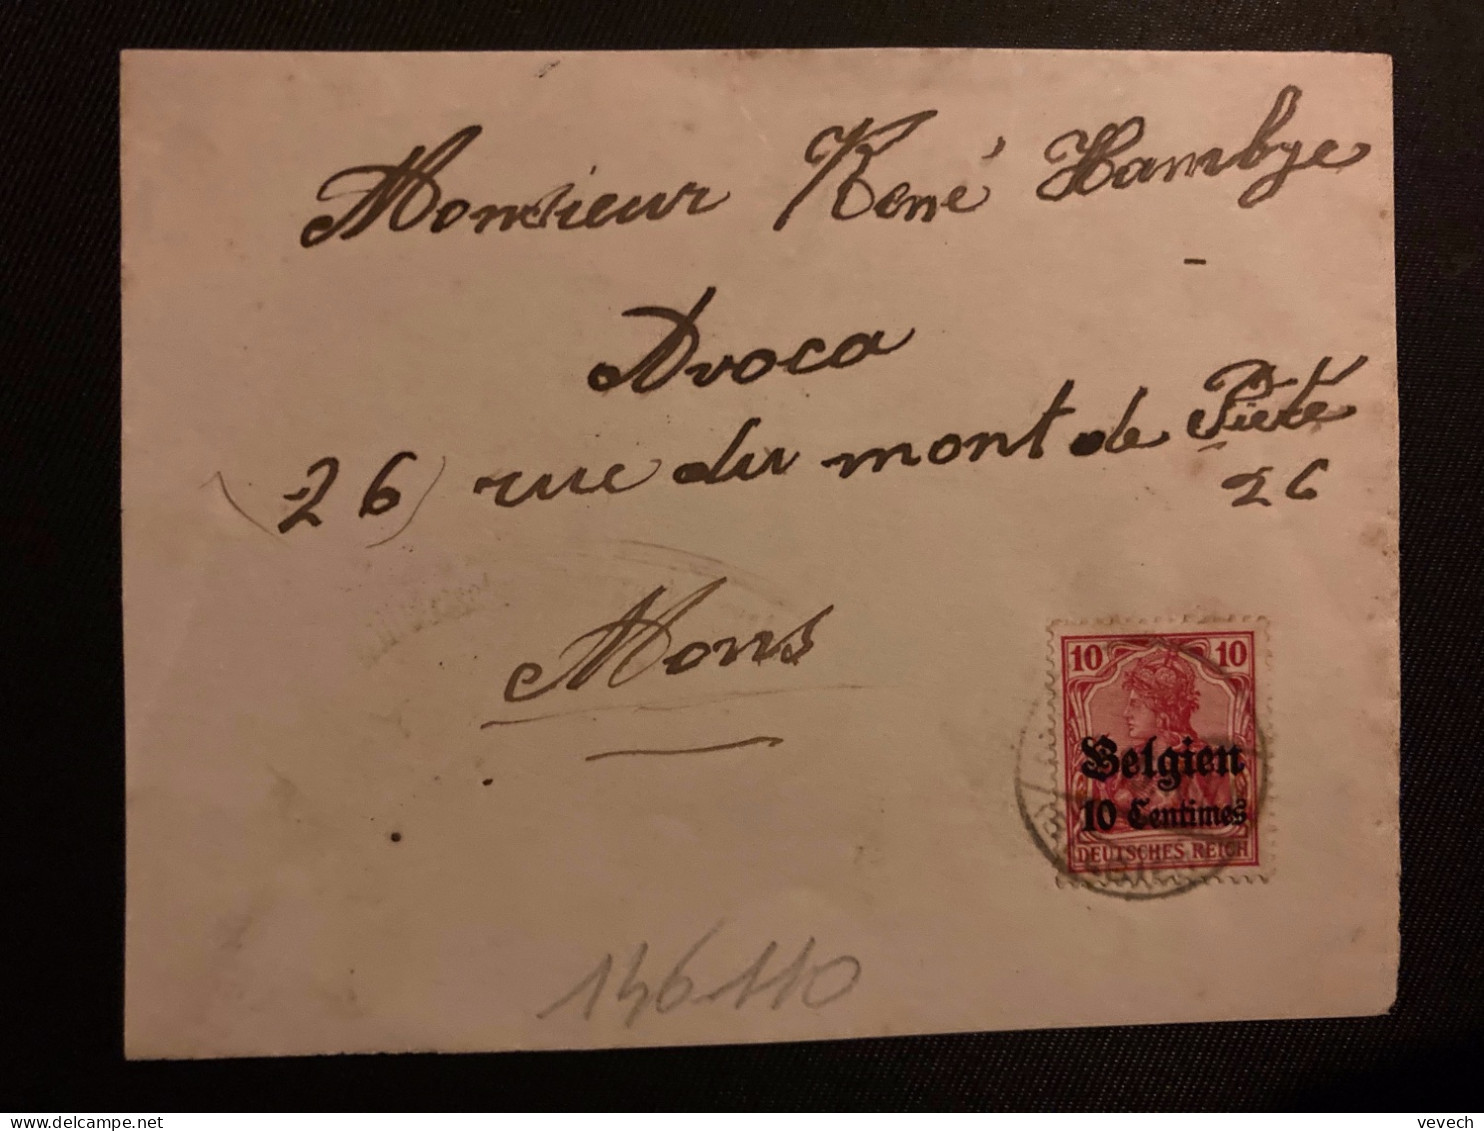 Monsieur René Hambye
Avoca
(26) rue du mont de Piété
26
Mons
10 10
Belgien
10 Centimes
DEUTSCHES REICH
146110
vevech